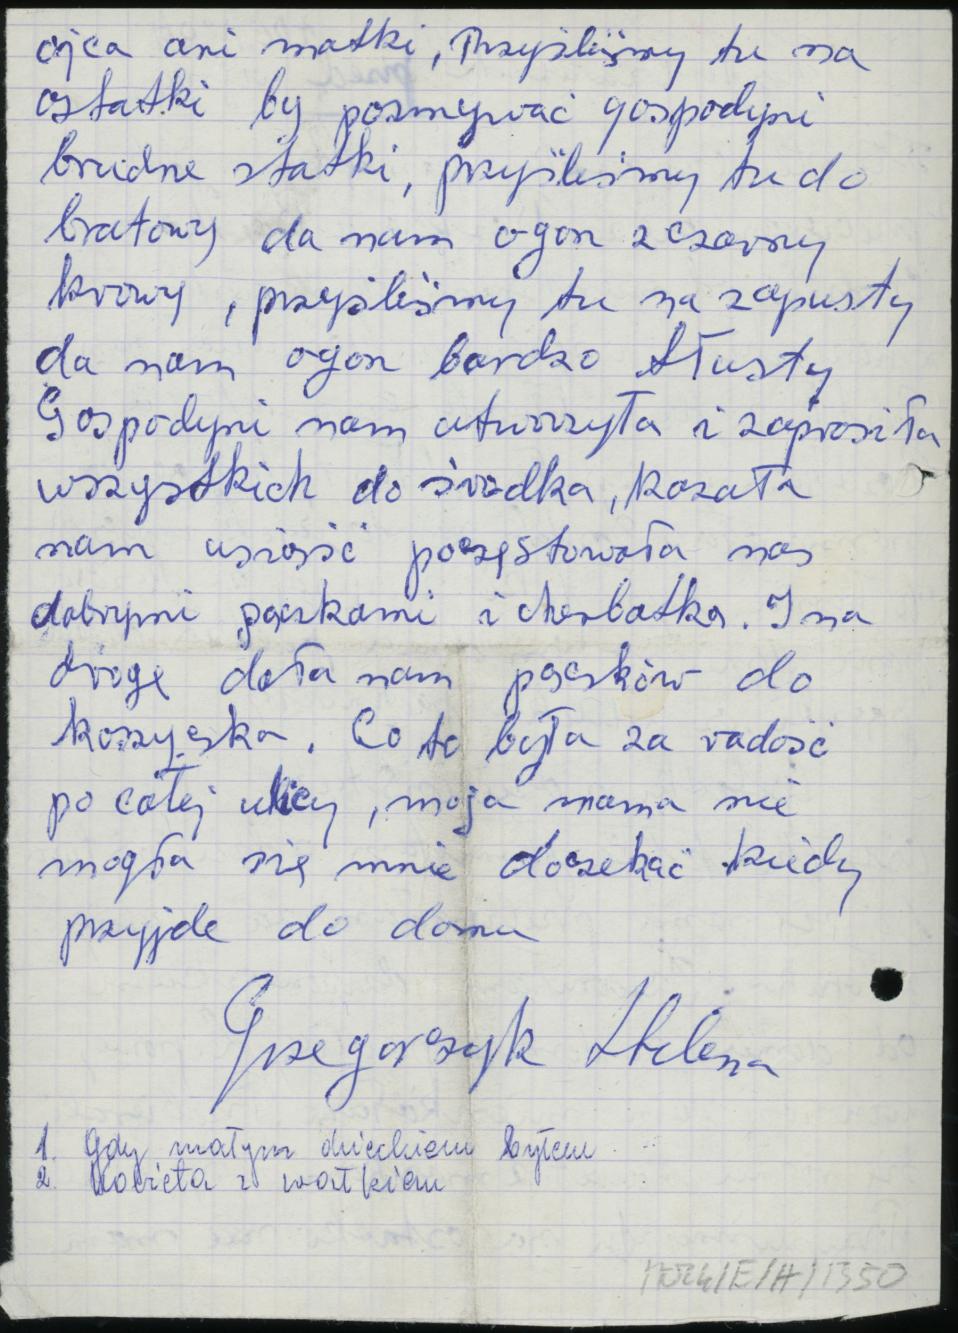 ojca ani matki, Przyśliśmy tu na
ostatki by pozmywać gospodyni
brudne statki, przyśliśmy tu do
bratowy da nam ogon z czarny
krowy, przyśliśmy tu na zapusty
da nam ogon bardzo tłusty
Gospodyni nam utworzyła i zaprosiła
wszystkich do środka, kazała
nam usiąść poczęstowała nas
dobrymi pączkami i cherbatką. I na
drogę dała nam pączków do
koszyczka. Co to była za radość
po całej ulicy, moja mama nie
mogła się mnie doczekać kiedy
przyjde do domu
Grzegorczyk Helena
1. Gdy małym dzieckiem byłem
2. Kobieta z wałkiem
/E/H/1350